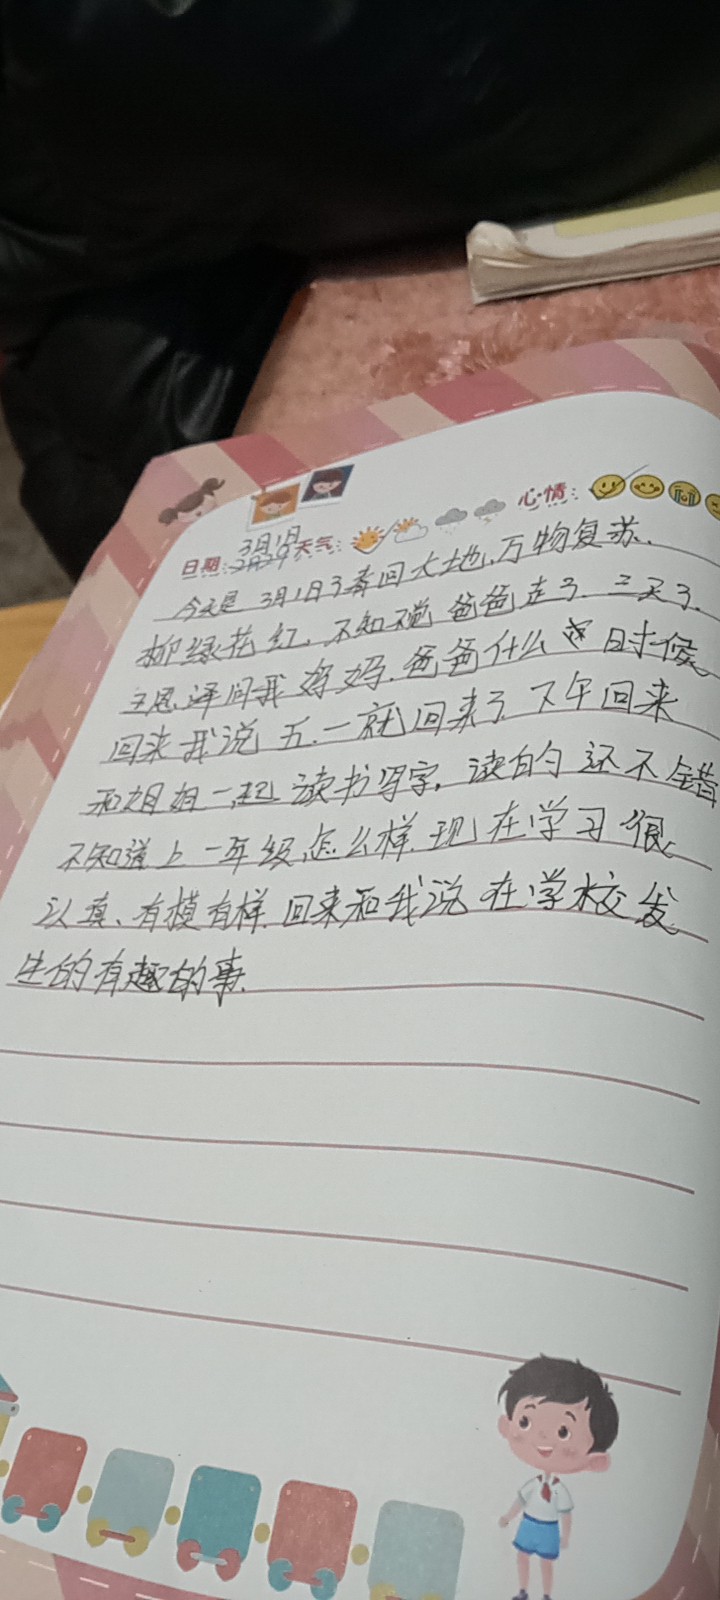 心情:
3月1日
日期: 2月29 天气:
今天是3月1日了春回大地,万物复苏.
柳绿花红.不知不觉爸爸走了.三天了.
恩泽问我妈妈.爸爸什么时候
回来我说五.一就回来了.下午回来
和姐姐一起读书写字.读的还不错
不知道上一年级怎么样.现在学习很
认真、有模有样.回来和我说在学校发
生的有趣的事.